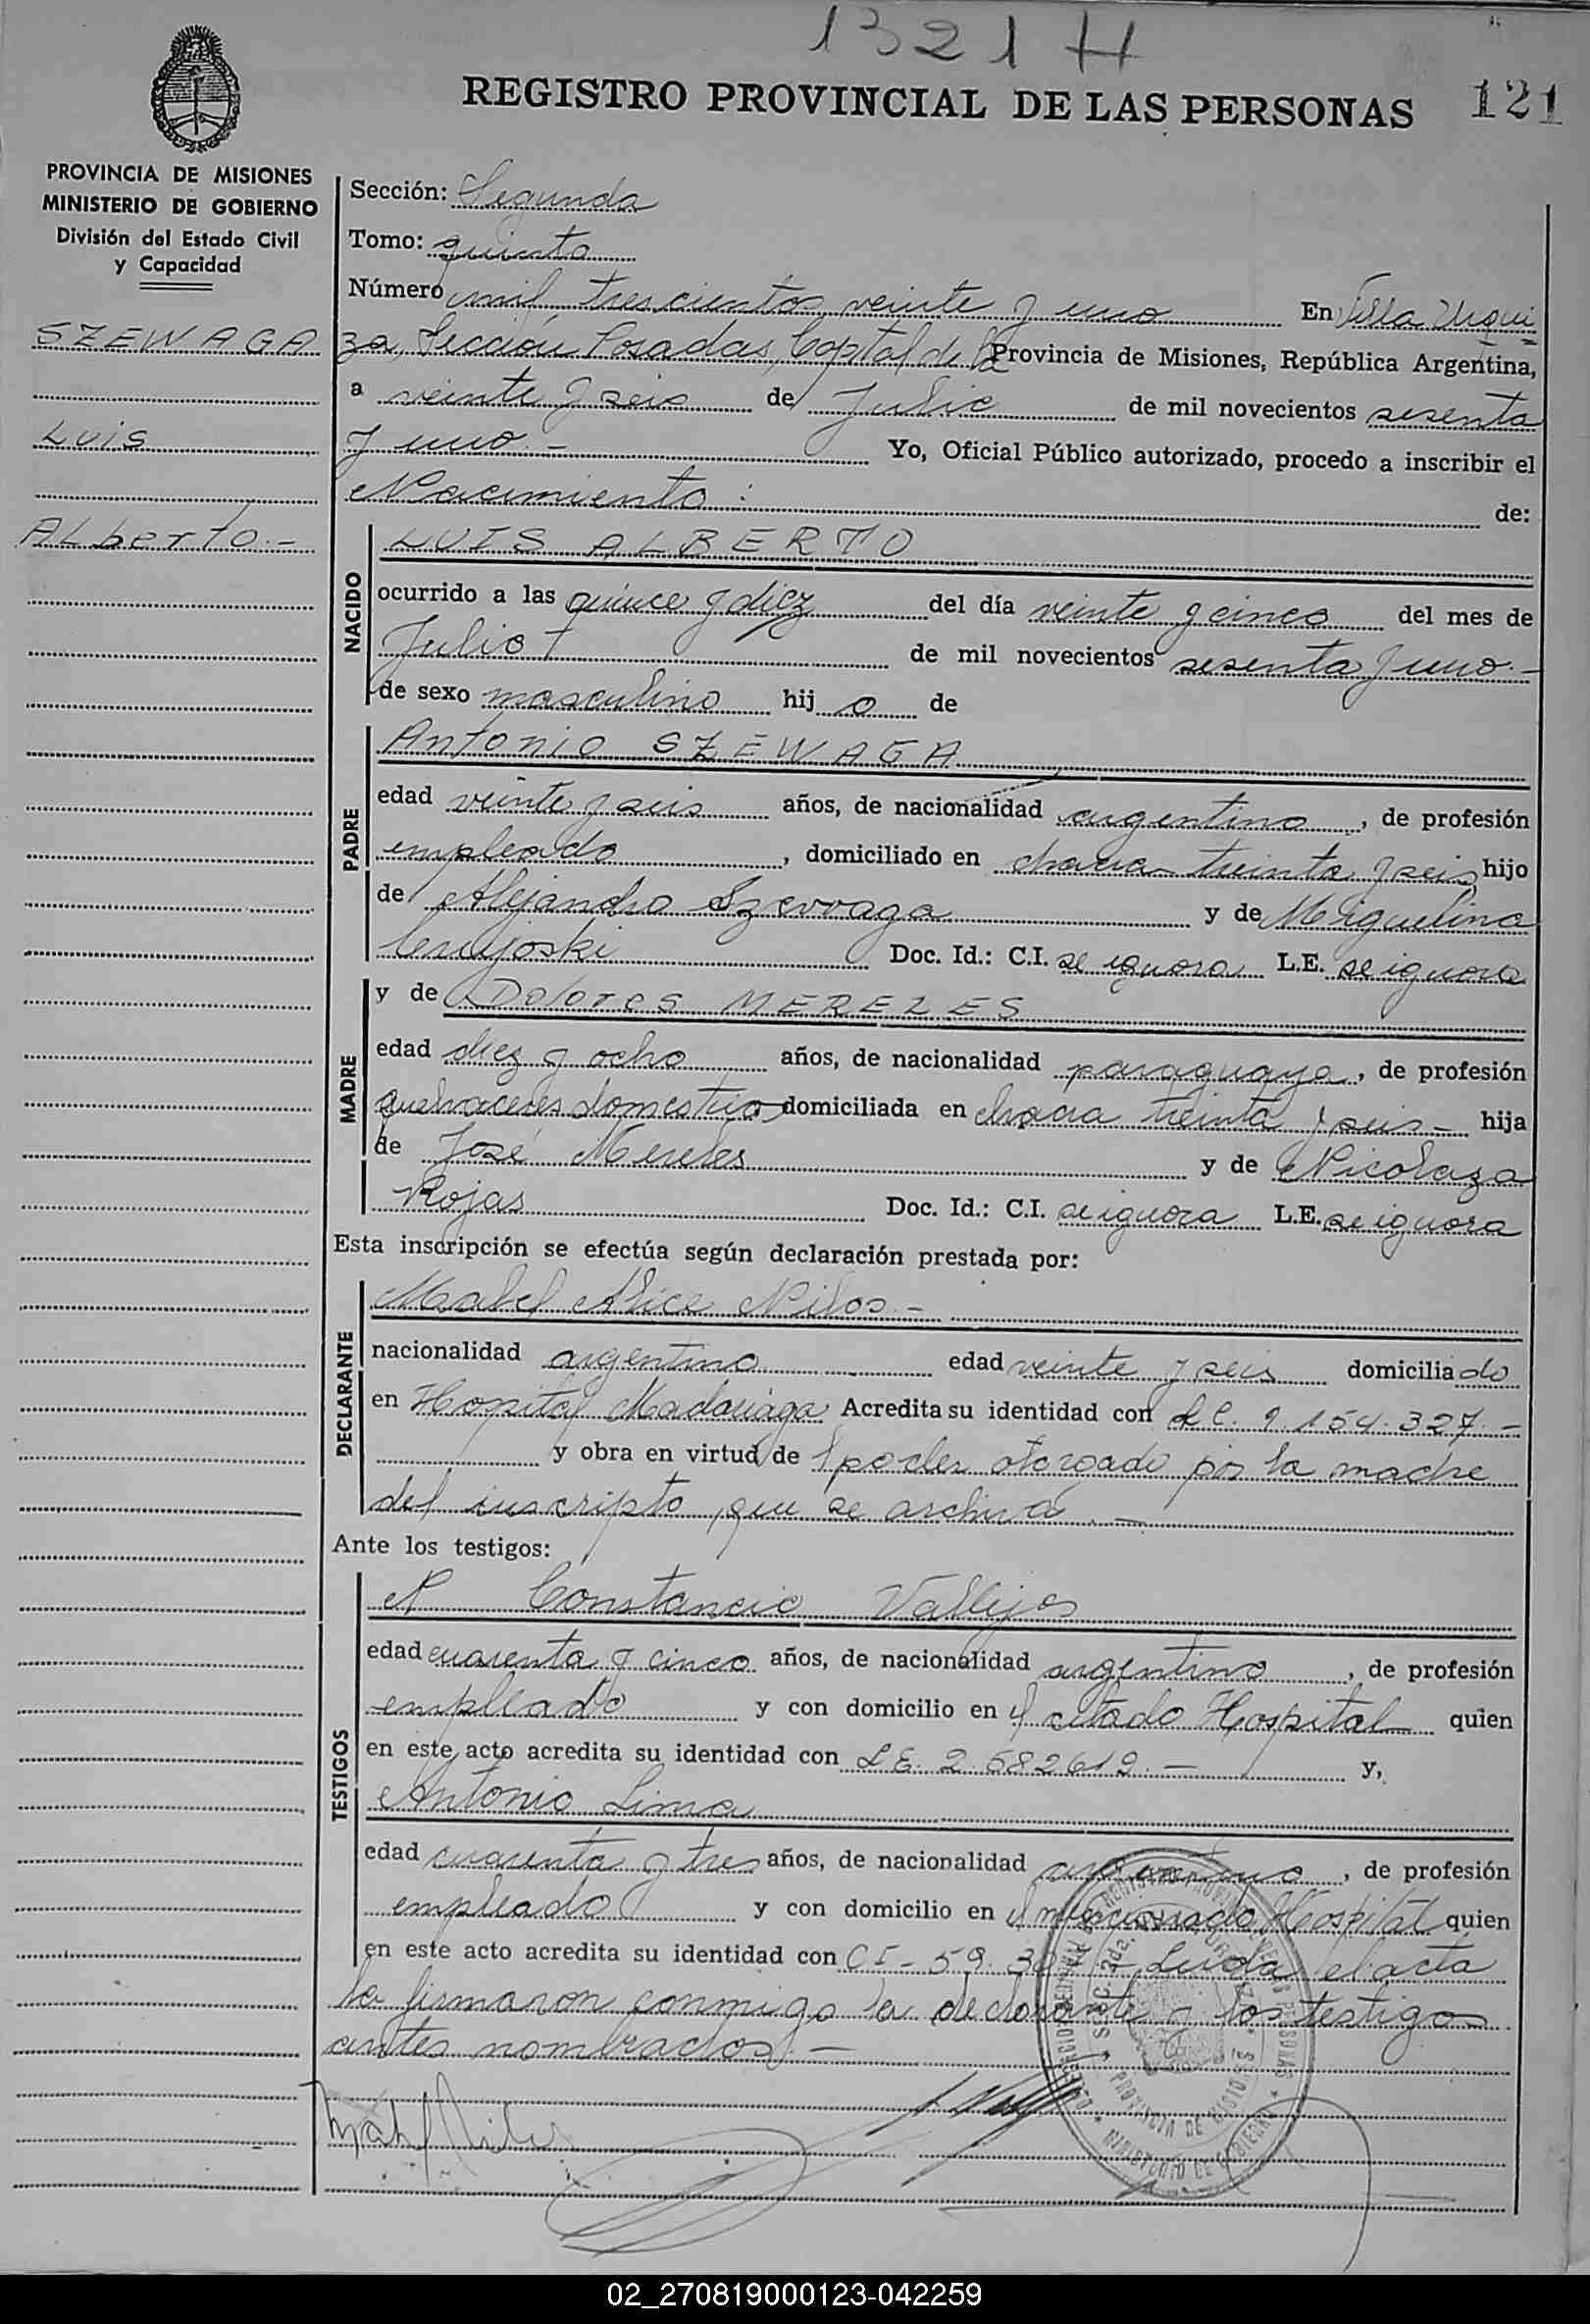 1321 H
REGISTRO PROVINCIAL DE LAS PERSONAS 121
PROVINCIA DE MISIONES
MINISTERIO DE GOBIERNO
División del Estado Civil
y Capacidad
SZEWAGA
LUIS
ALberto.-
Sección: Segunda
Tomo: quinto
Número mil trescientos veinte y uno En Villa Urqui
za, Sección Posadas, Capital de la Provincia de Misiones, República Argentina,
a veinte y seis de Julio de mil novecientos sesenta
y uno.- Yo, Oficial Público autorizado, procedo a inscribir el
Nacimiento: de:
NACIDO
LUIS ALBERTO
ocurrido a las quince y diez del día veinte y cinco del mes de
Julio de mil novecientos sesenta y uno.-
de sexo masculino hijo de
PADRE
Antonio SZEWAGA
edad veinte y seis años, de nacionalidad argentino, de profesión
empleado, domiciliado en chacra treinta y seis, hijo
de Alejandro Szewaga y de Miguelina
Doc. Id.: C.I. se ignora L.E. se ignora
MADRE
y de Dolores MERELES
edad diez y ocho años, de nacionalidad paraguaya, de profesión
quehaceres domesticos domiciliada en chacra treinta y seis- hija
de José Mereles y de Nicolaza
Rojas Doc. Id.: C.I. se ignora L.E. se ignora
Esta inscripción se efectúa según declaración prestada por:
DECLARANTE
Mabel Alice Nilos.-
nacionalidad argentina edad veinte y seis domiciliado
en Hospital Madariaga Acredita su identidad con LC. 9.154.327.-
y obra en virtud de poder otorgado por la madre
del inscripto, que se archiva.-
Ante los testigos:
TESTIGOS
N Constancio Vallejos
edad cuarenta y cinco años, de nacionalidad argentino, de profesión
empleado y con domicilio en el citado Hospital quien
en este acto acredita su identidad con LE. 2.582612.- y,
Antonio Lima
edad cuarenta y tres años, de nacionalidad argentino, de profesión
empleado y con domicilio en el mencionado Hospital quien
en este acto acredita su identidad con CI- 59. Leida el acta
la firmaron conmigo la declarante y los testigos
antes nombrados.-
02_270819000123-042259